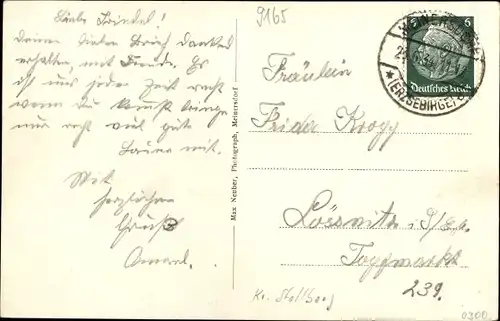 Liebe Friedel!
Deinen lieben Brief dankend
erhalten, mit Freude. Es
ist uns jeder Zeit recht
wenn du kommst bringe
nur recht viel gute
Laune mit.
Mit
herzlichem
Gruß
9165
Fräulein
Frida
Lössnitz i/Erz.
Topfmarkt
239.
Kr. Stollberg
0300
Max Neuber, Photograph, Meinersdorf
6
Deutsches Reich
(ERZGEBIRGE)